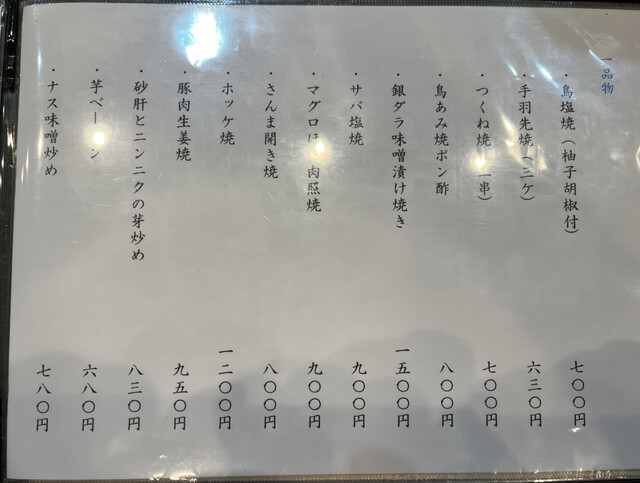 一品物
・鳥塩焼（柚子胡椒付） 七〇〇円
・手羽先焼（三ケ） 六三〇円
・つくね焼 串） 七〇〇円
・鳥あみ焼ポン酢 八〇〇円
・銀ダラ味噌漬け焼き 一五〇〇円
・サバ塩焼 九〇〇円
・マグロほ 肉照焼 九〇〇円
・さんま開き焼 八〇〇円
・ホッケ焼 一二〇〇円
・豚肉生姜焼 九五〇円
・砂肝とニンニクの芽炒め 八三〇円
・芋ベーコン 六八〇円
・ナス味噌炒め 七八〇円